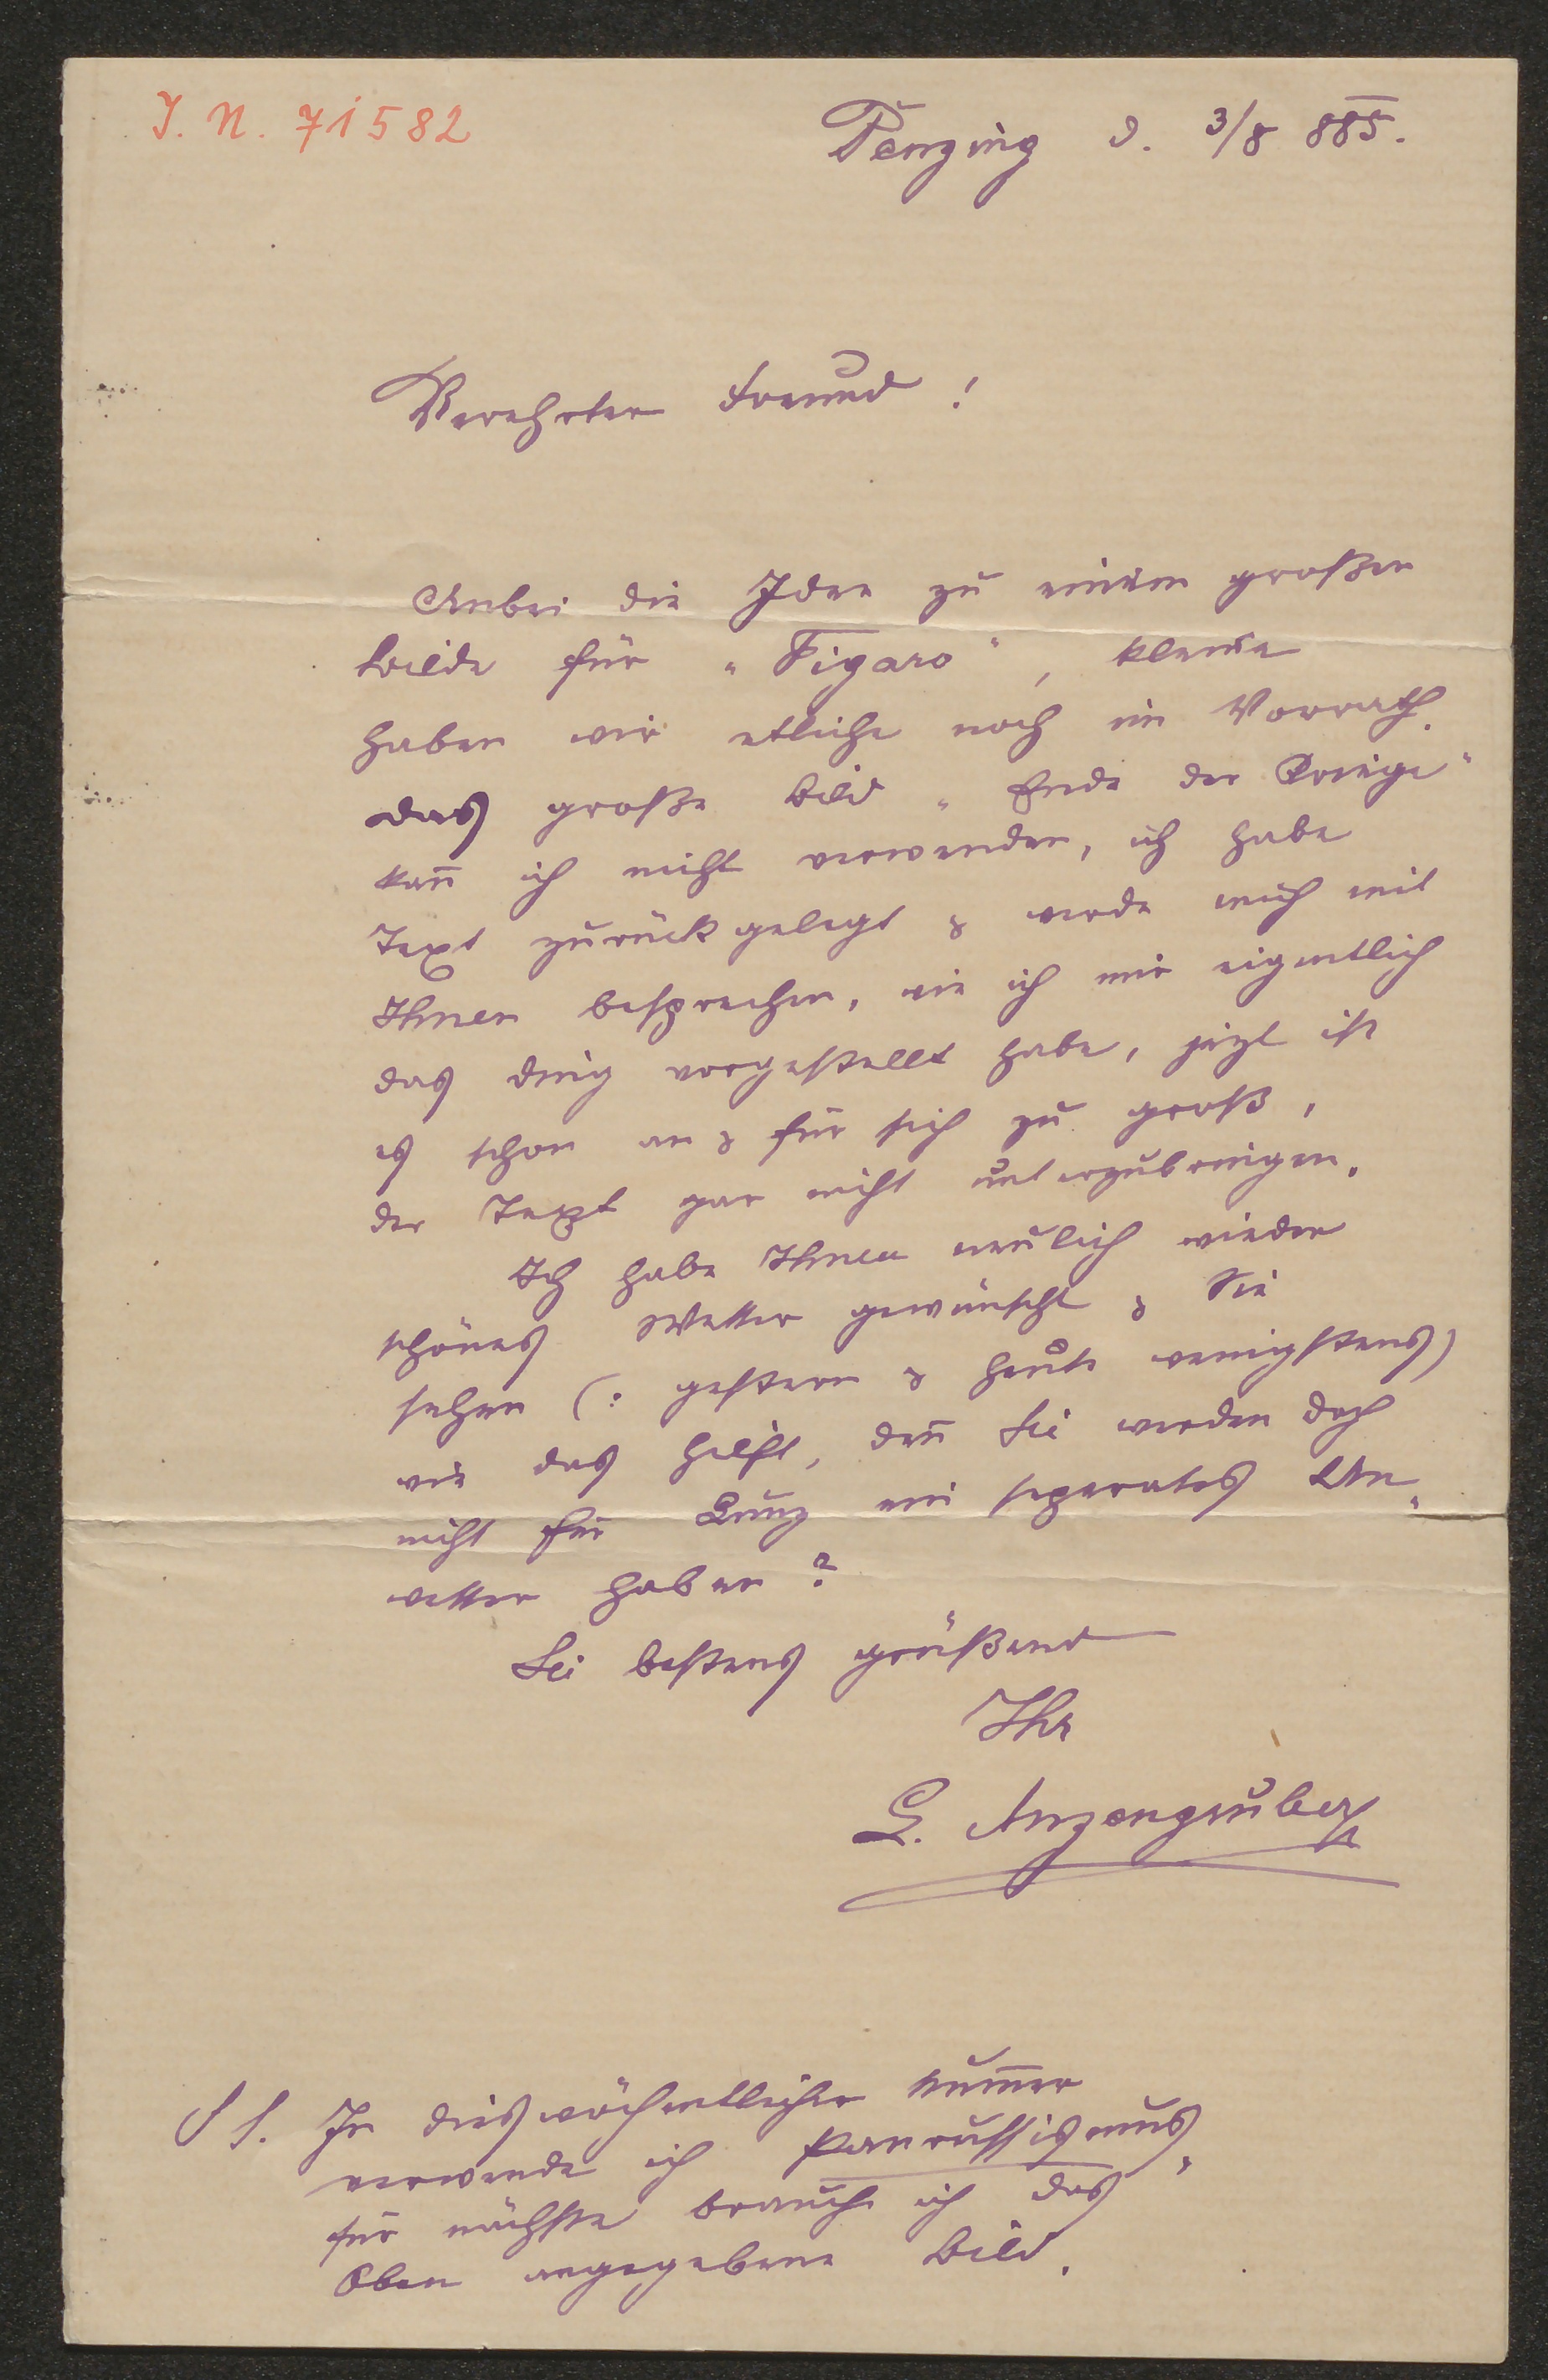 J. N. 71582
Penzing d. 3/8 885.
Verehrter Freund!
Anbei die Idee zu einem großen
Bilde für „Figaro“, kleine
haben wir etliche noch im Vorrath.
das große Bild „Ende der Kriege“
kan̄ ich nicht verwenden, ich habe
Text zurückgelegt & werde mich mit
Ihnen besprechen, wie ich mir eigentlich
das ding vorgestellt habe, jezt ist
es schon an & für sich zu groß,
der Text gar nicht unterzubringen.
Ich habe Ihnen neulich wieder
schönes Wetter gewünscht & Sie
sehen (: gestern & heute wenigstens)
wie das hilft, den̄ Sie werden doch
nicht für Lunz ein separates Un-
wetter haben?
Sie bestens grüßend
Ihr
L. Anzengruber
P S. In dieswöchentlicher Num̄er
verwende ich Panrussismus,
für nächste brauche ich das
Oben angegebene Bild.